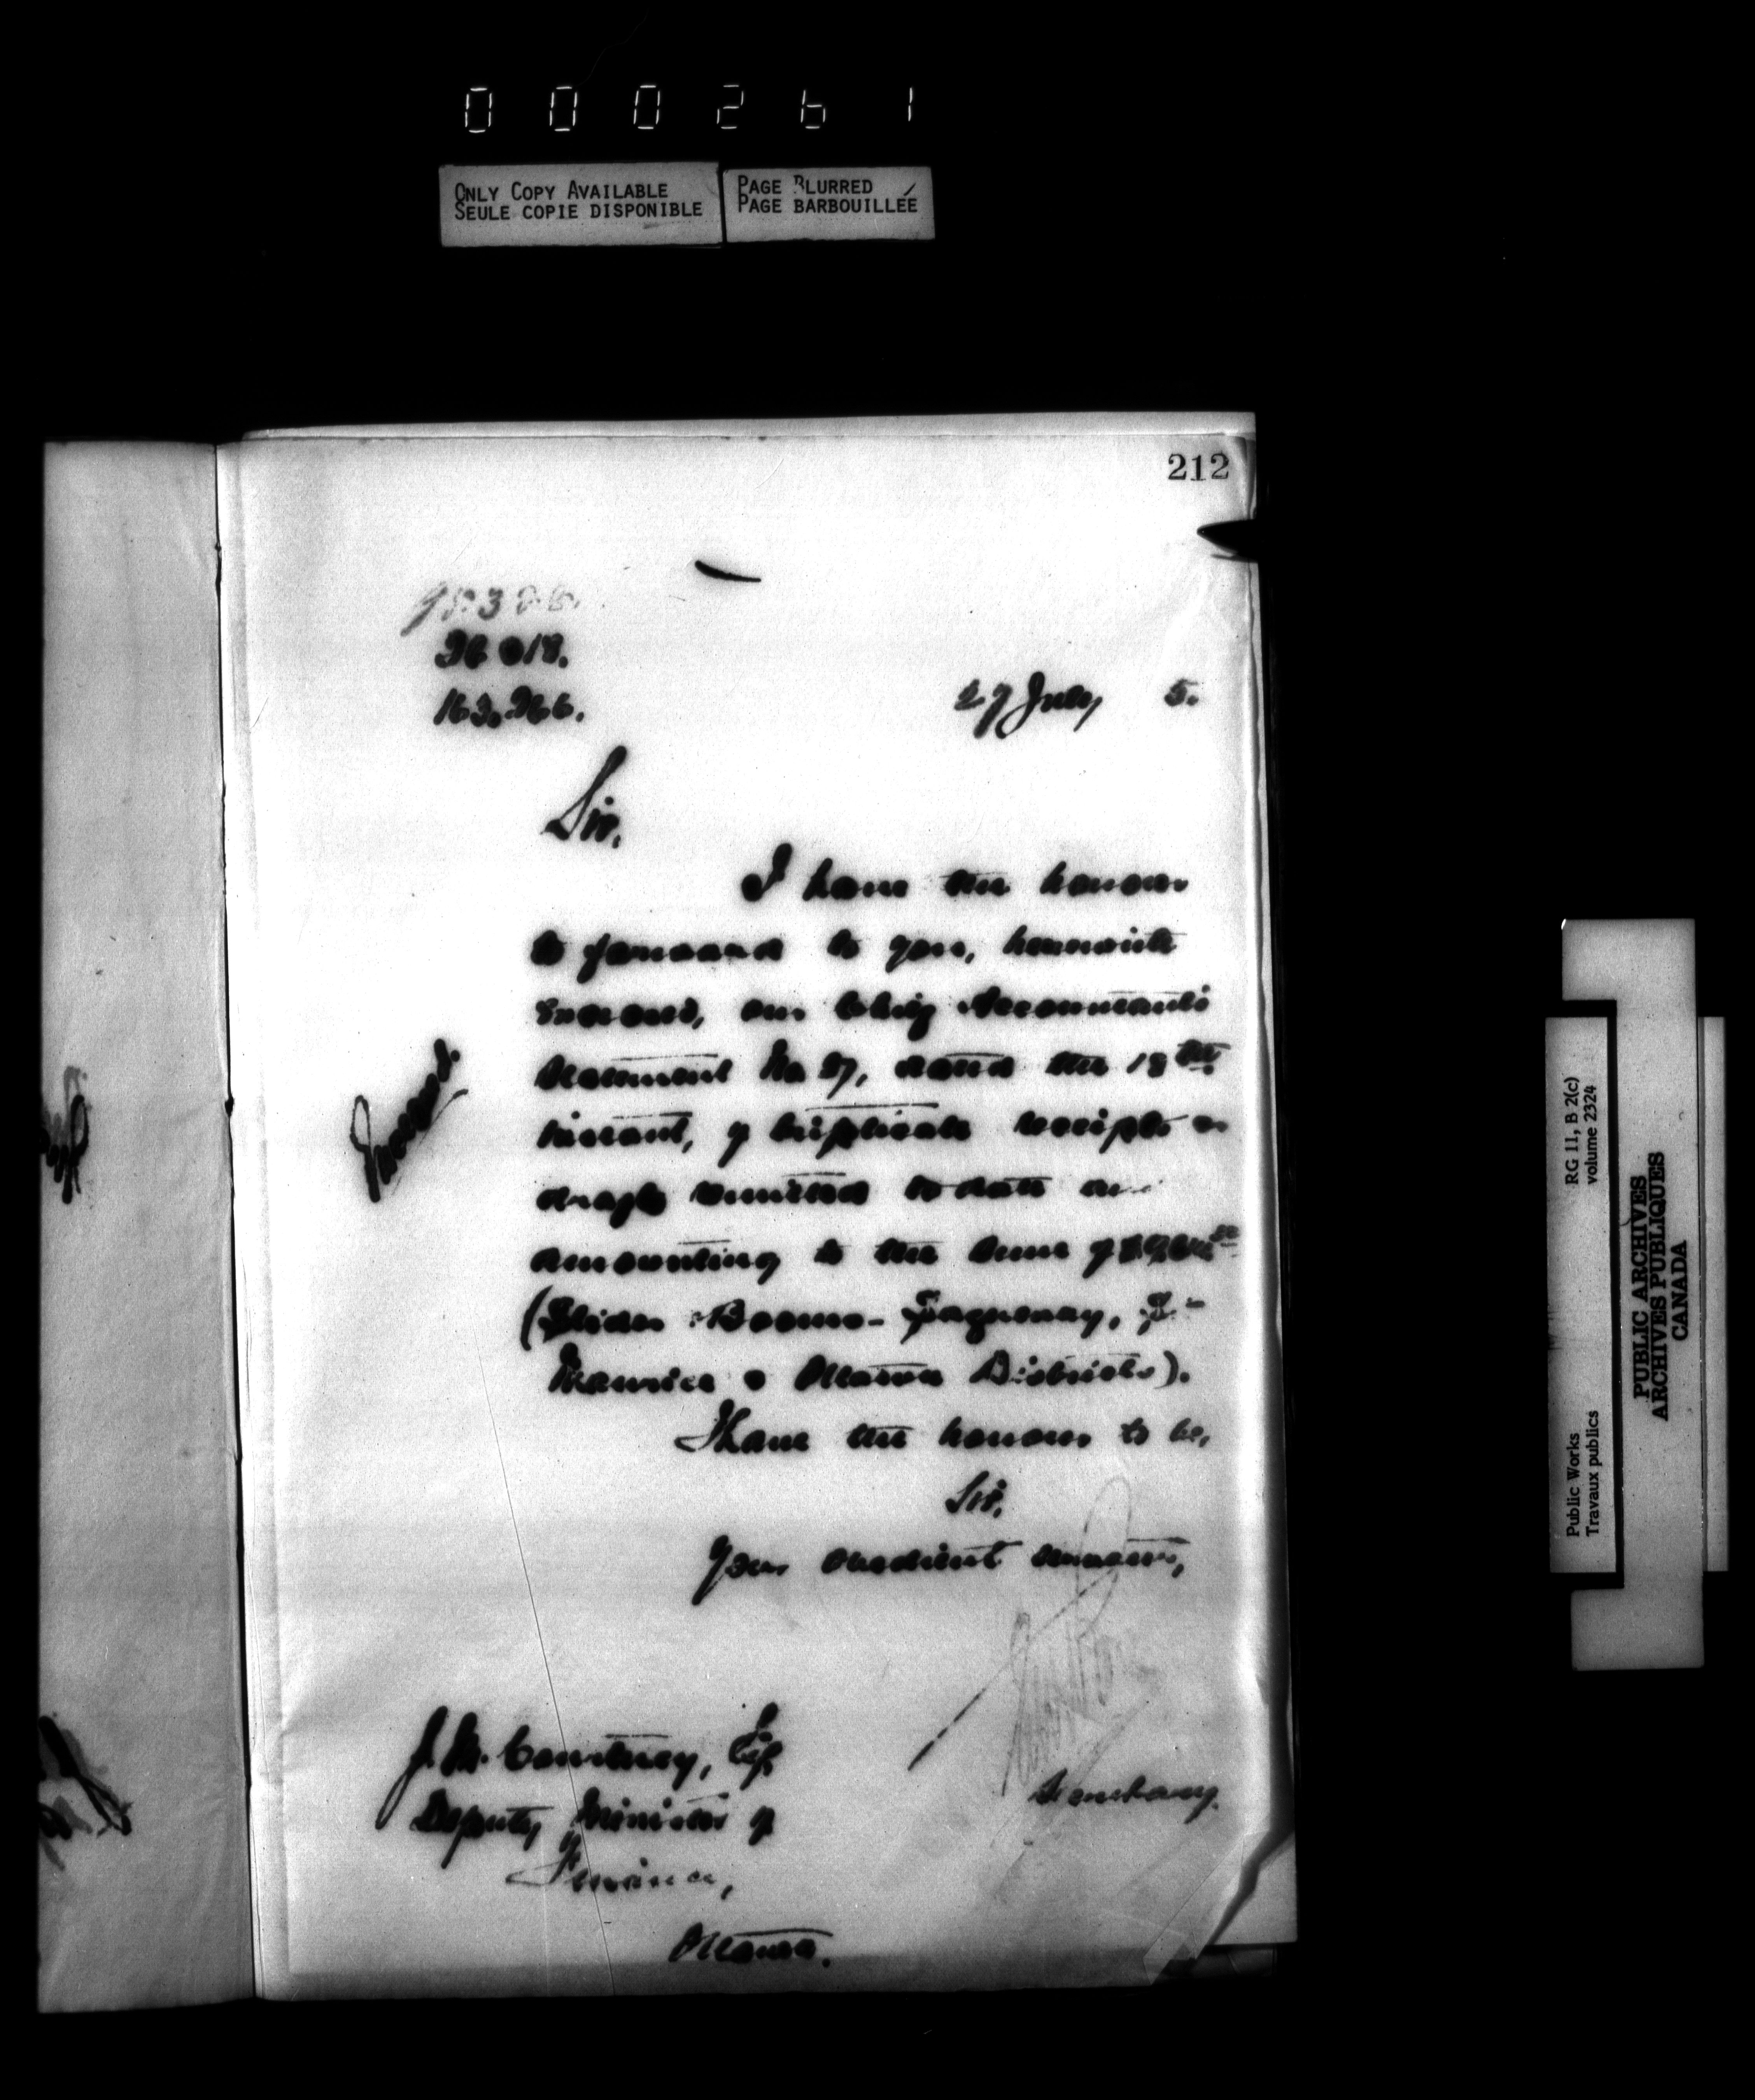 000261
ONLY COPY AVAILABLE
SEULE COPIE DISPONIBLE
PAGE BLURRED
PAGE BARBOUILLÉE
212
163.266.
27 July 5.
Sir,
I have the honour
to forward to you, herewith
enclosed, our Acting Accountant's
statement No 27, dated the 18th
instant, of triplicate receipts
drafts to date
amounting to the sum of
(Slides & Booms - Saguenay, St
Maurice & Ottawa Districts).
I have the honour to be,
Sir,
Your obedient servant,
J. M. Courtney, Esq
Deputy Minister of
Finance,
Ottawa.
Secretary.
Public Works
Travaux publics
RG 11, B 2(c)
volume 2324
PUBLIC ARCHIVES
ARCHIVES PUBLIQUES
CANADA